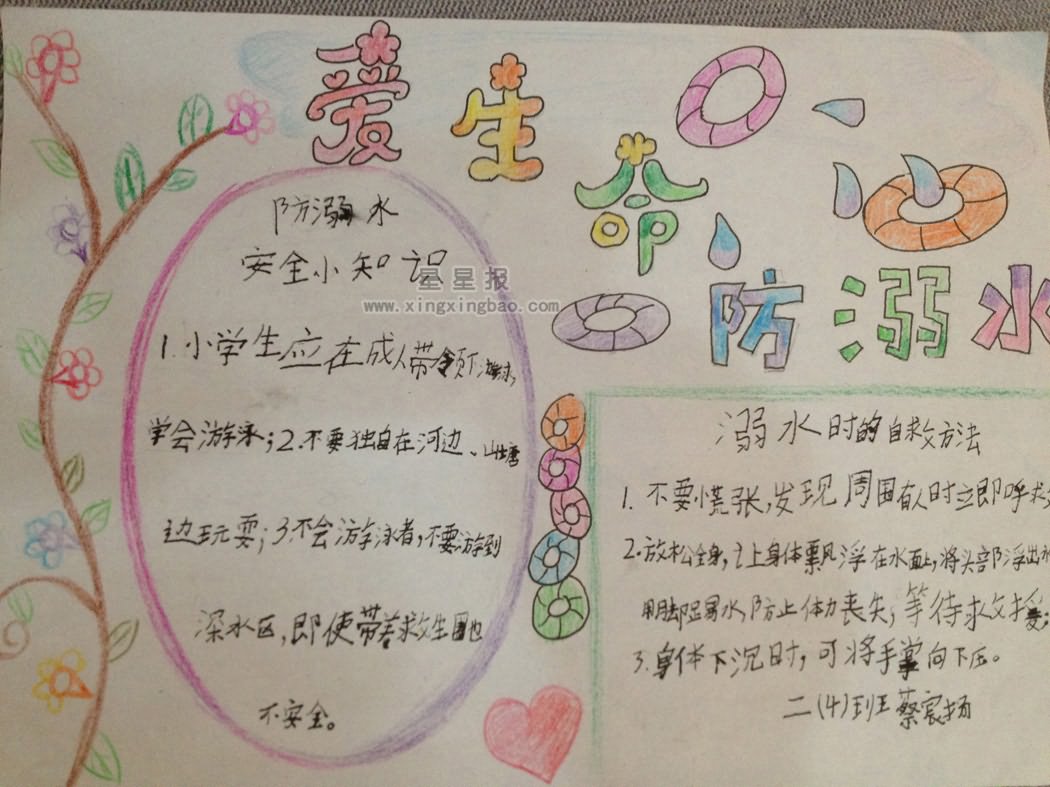 爱生命
防溺水
防溺水
安全小知识
星星报
www.xingxingbao.com
1.小学生应在成人带领下游泳,
学会游泳;2.不要独自在河边、山塘
边玩耍;3不会游泳者,不要游到
深水区,即使带着救生圈也
不安全。
溺水时的自救方法
1.不要慌张,发现周围有人时立即呼求
2.放松全身,让身体飘浮在水面上,将头部浮出水
用脚踢水,防止体力丧失,等待求援;
3.身体下沉时,可将手掌向下压。
二(4)班 蔡宸扬